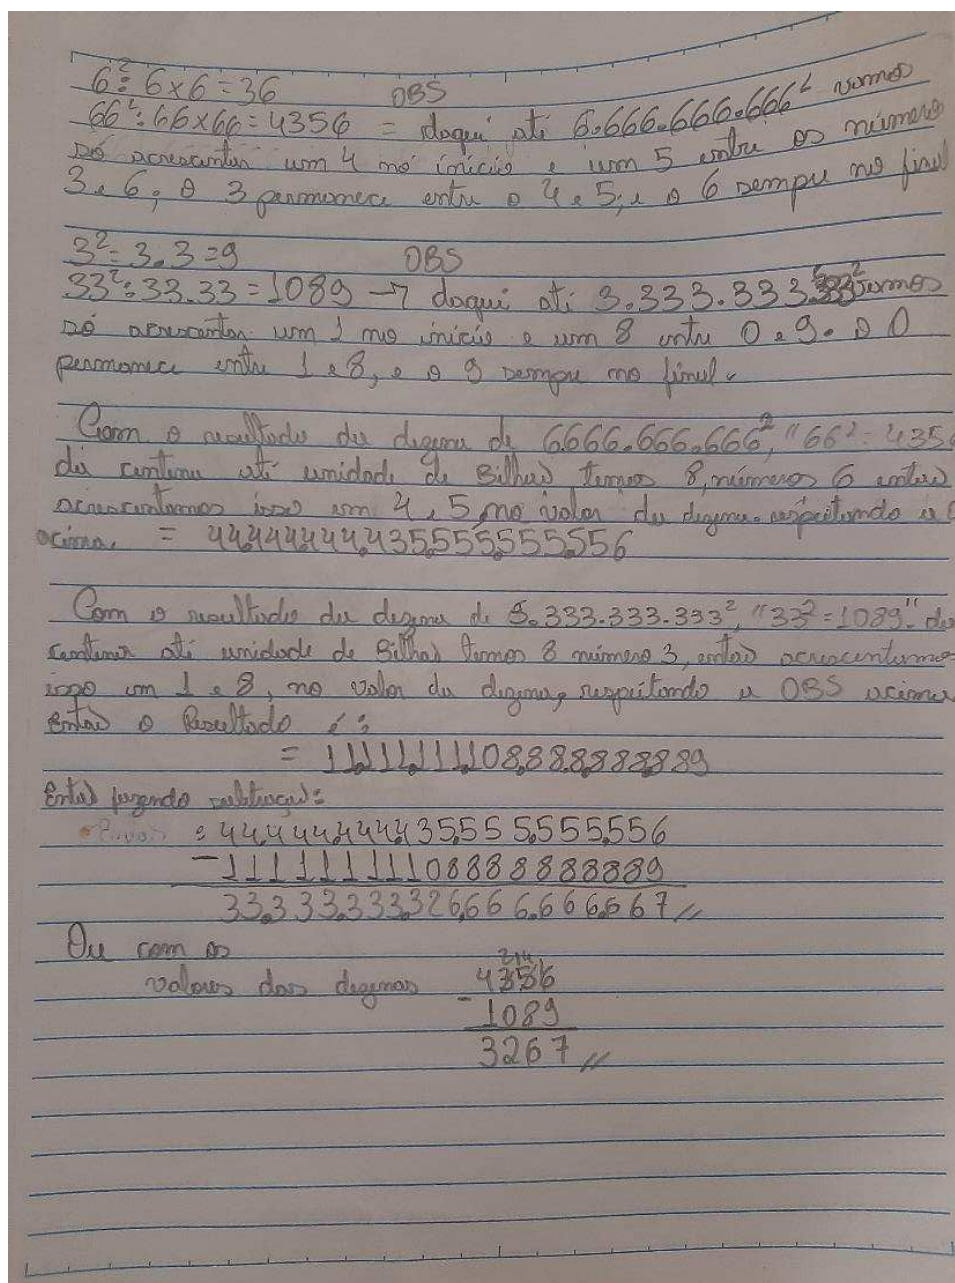 6²= 6x6=36 OBS
66²: 66x66=4356 = daqui até 6.666.666.666² vamos
só acrescentar um 4 no início e um 5 entre os número
3 e 6; o 3 permanece entre o 4 e 5; e o 6 sempre no final
3²= 3.3=9 OBS
33²: 33.33=1089 → daqui até 3.333.333.333² vamos
só acrescentar um 1 no início e um 8 entre 0 e 9. o 0
permanece entre 1 e 8, e o 9 sempre no final.
Com o resultado da dezena de 6666.666.666², "66²=4356
da centena até unidade de Bilhão temos 8, números 6 então
acrescentamos isso em 4 e 5, no valor da dezena. respeitando a
acima. = 44.444.444.435.555.555.556
Com o resultado da dezena de 3.333.333.333², "33²=1089" da
centena até unidade de Bilhão temos 8 número 3, então acrescentamos
isso em 1 e 8, no valor da dezena, respeitando a OBS acima
Então o Resultado é:
= 11.111.111.108.888.888.889
Então fazendo subtração:
: 44.444.444.435.555.555.556
-11111111108888888889
33.333.333.326.666.666.667//
Ou com os
valores das dezenas 4356
-1089
3267//